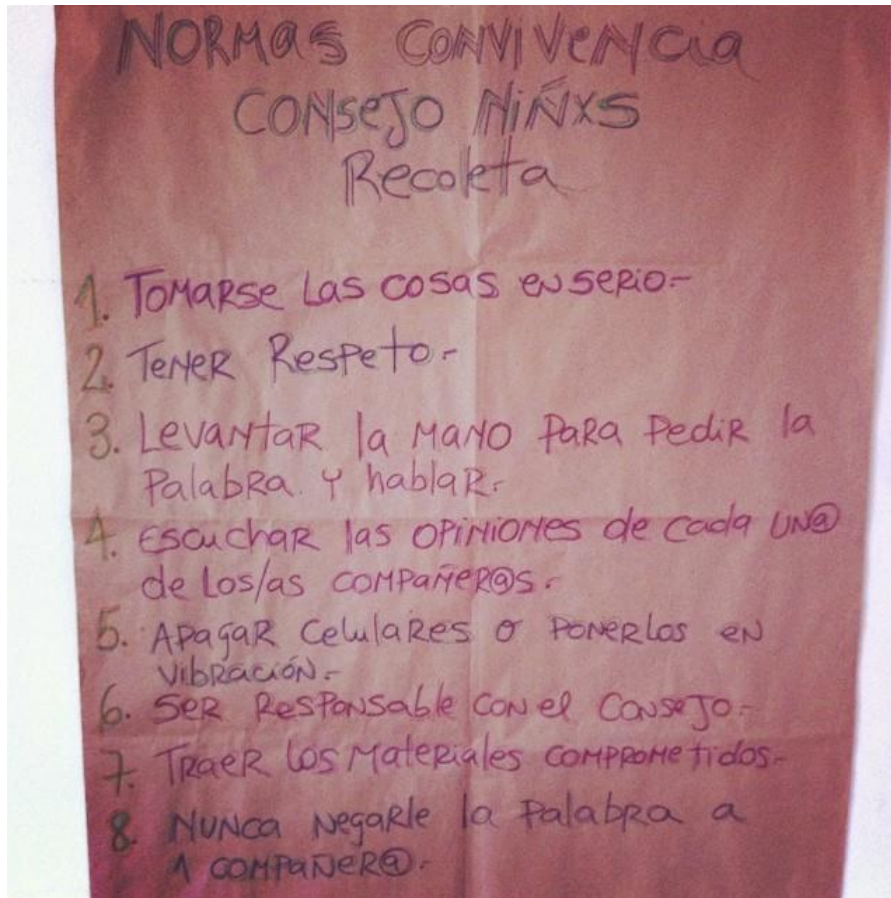 NORMas CONVIVeNCia
CONseJO NiÑXS
Recoleta
1. TOMaRse Las cosas eN seRiO.-
2. TeNeR ResPeto.-
3. LevaNtaR la MaNO PaRa PediR la
PalabRa. Y hablaR.-
4. escuchaR las OPiNiONes de cada UN@
de Los/as COMPañeR@s.-
5. APagaR CelulaRes o PONeRlos eN
vibRacióN.-
6. SeR ResPoNsable coN el CoNseJo.-
7. TRaeR Los MateRiales COMPROMetidos.-
8. NUNca NegaRle la PalabRa a
1 COMPañeR@.-